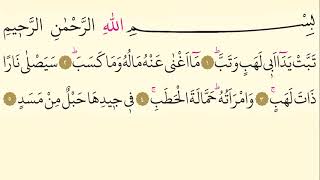 بِسْمِ اللهِ الرَّحْمٰنِ الرَّحٖيمِ
تَبَّتْ يَدَٓا اَبٖي لَهَبٍ وَتَبَّۜ ١ مَٓا اَغْنٰى عَنْهُ مَالُهُ وَمَا كَسَبَۜ ٢ سَيَصْلٰى نَارًا
ذَاتَ لَهَبٍۚ ٣ وَامْرَاَتُهُۜ حَمَّالَةَ الْحَطَبِۚ ٤ فٖي جٖيدِهَا حَبْلٌ مِنْ مَسَدٍ ٥